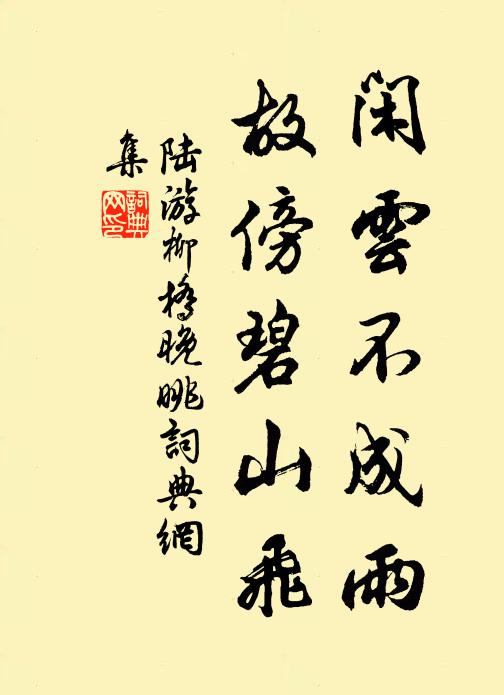 閑雲不成雨
故傍碧山飛
陸游柳橋晚眺詞典網
集
詞典
网印